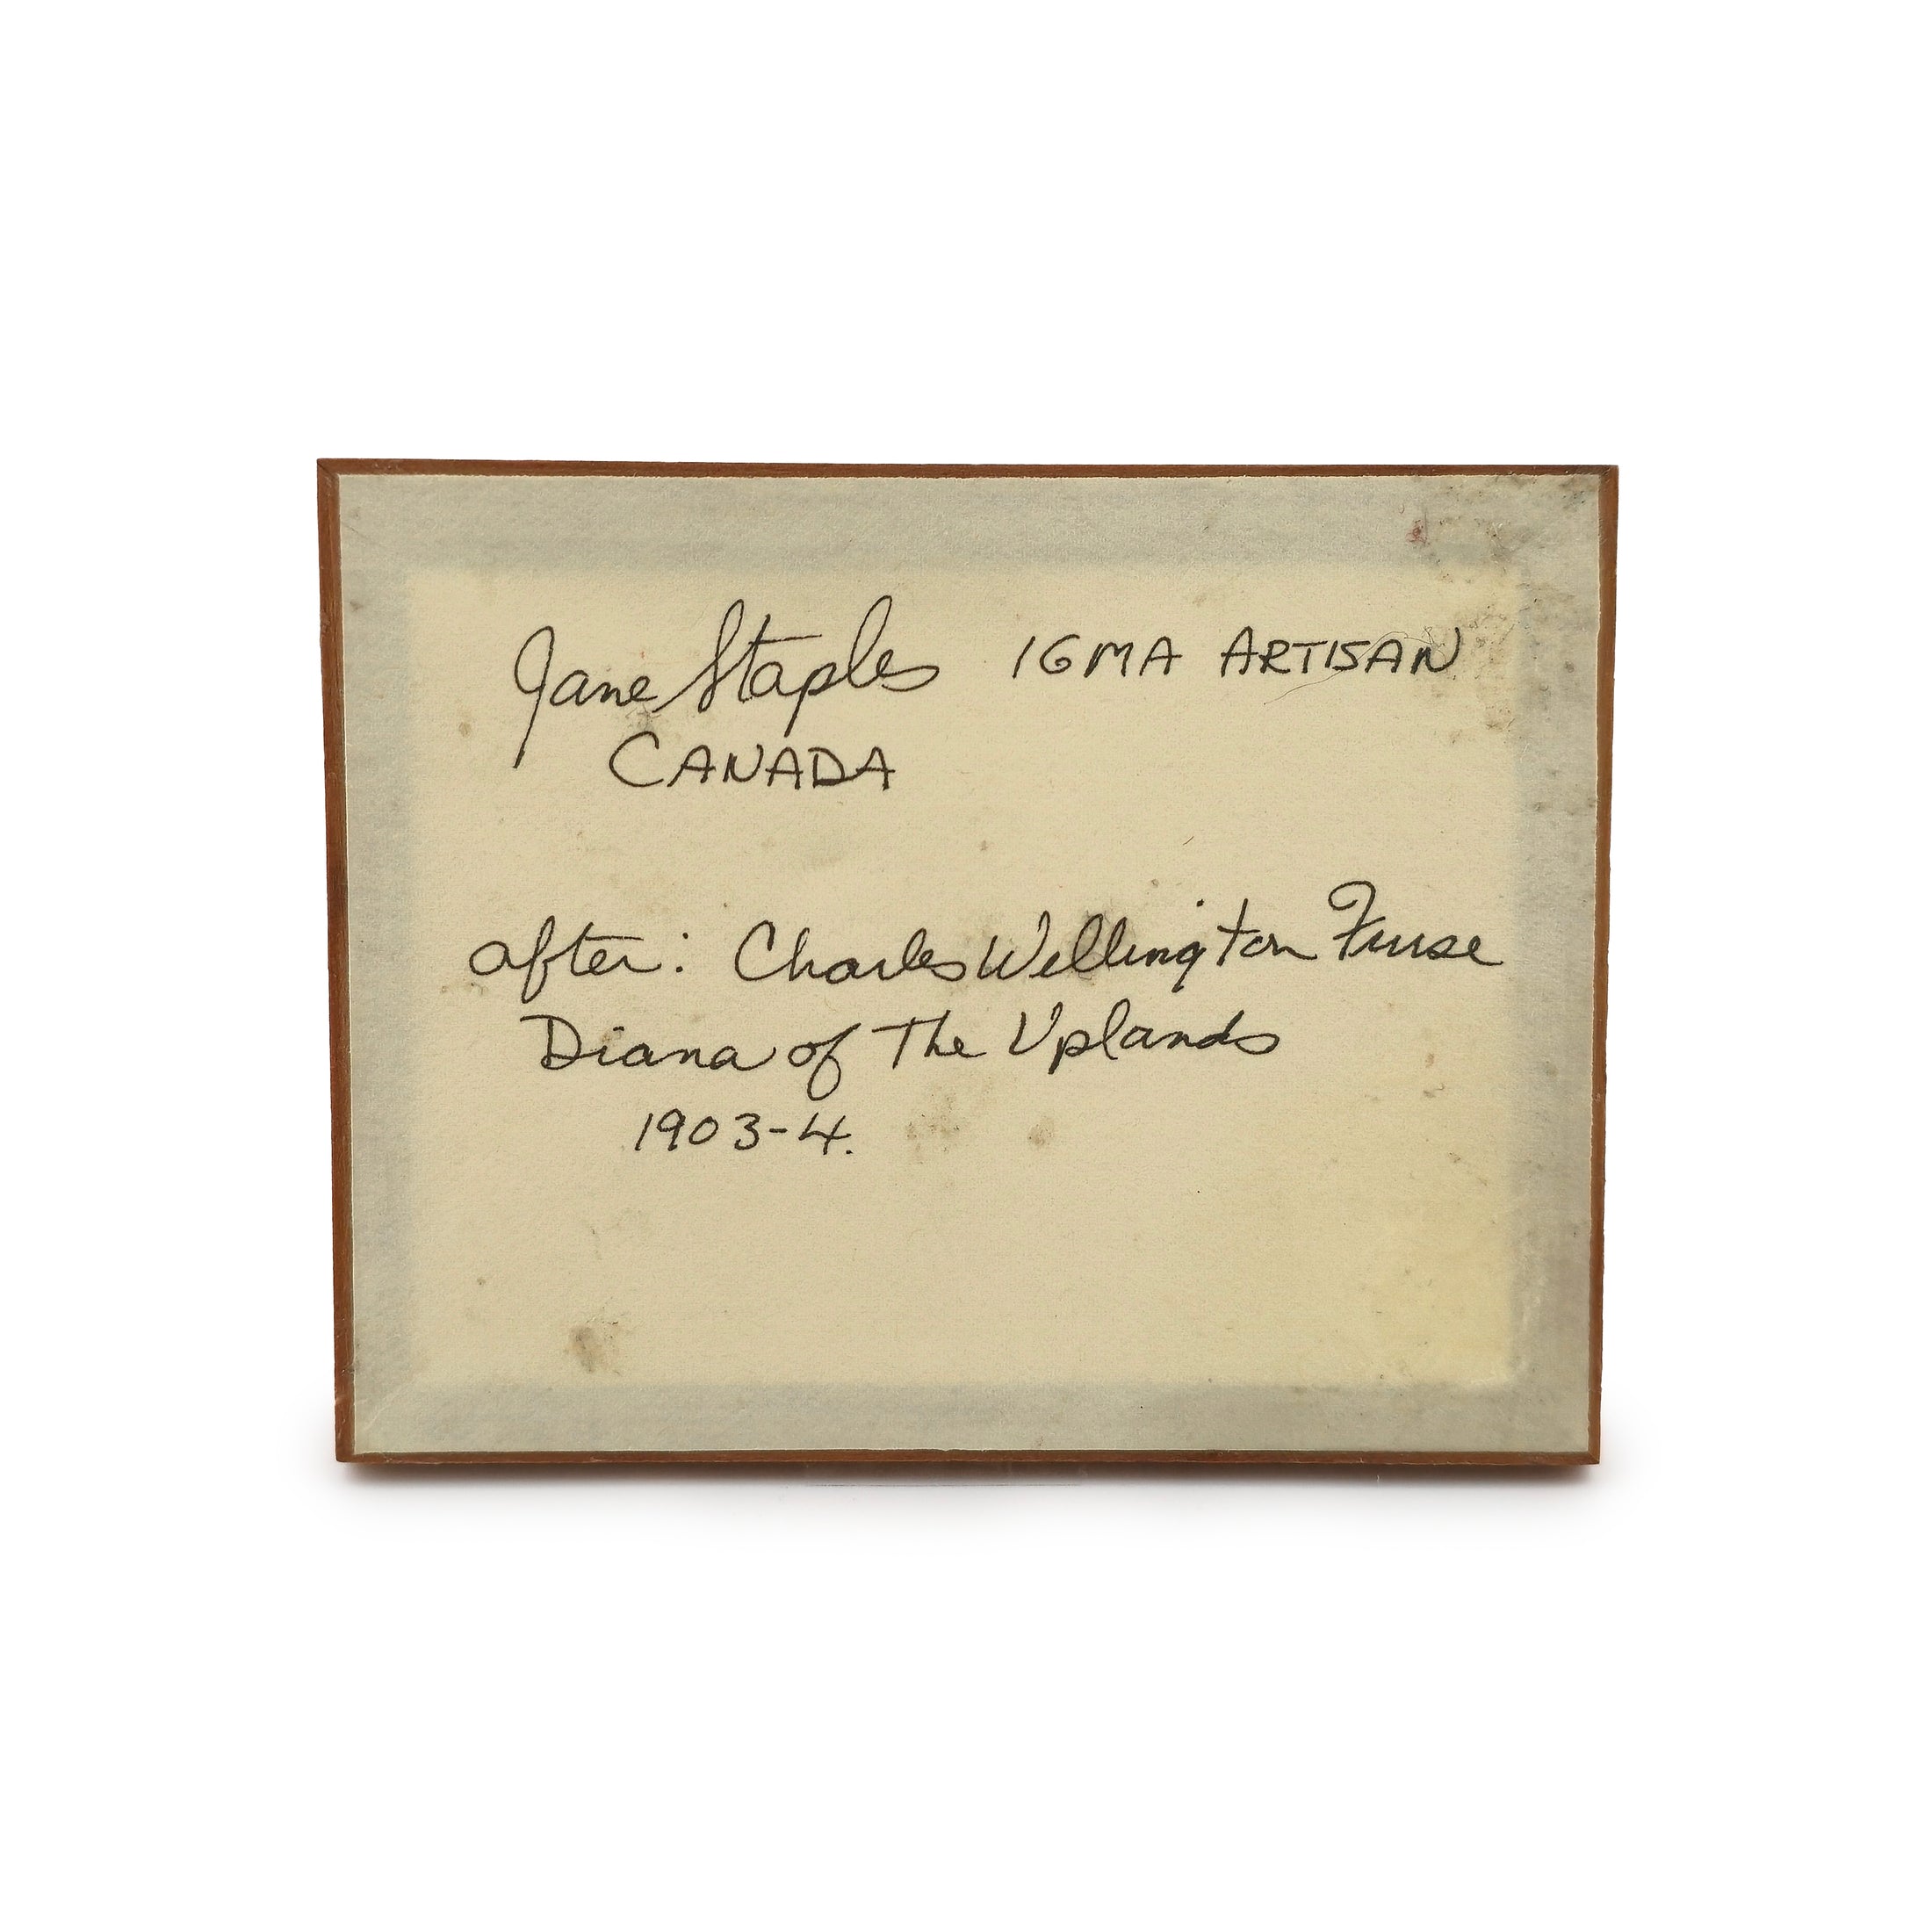 Jane Staples IGMA ARTISAN
CANADA
after: Charles Wellington Furse
Diana of The Uplands
1903-4.